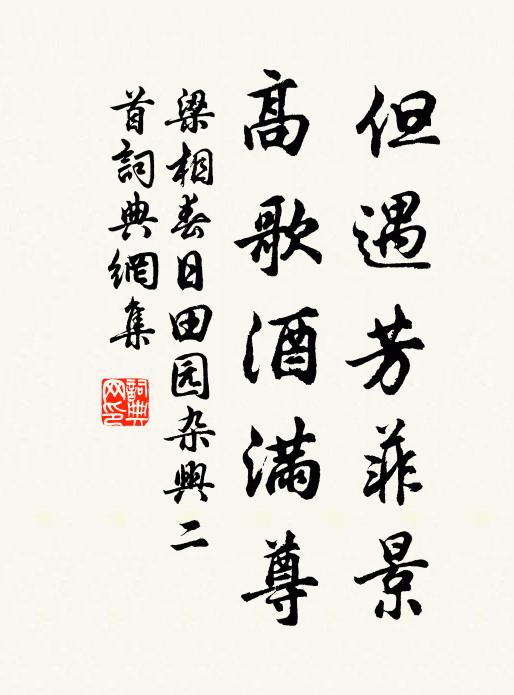 但遇芳菲景
高歌酒满尊
梁相春日田园杂興二
首詞典網集
詞典
网印